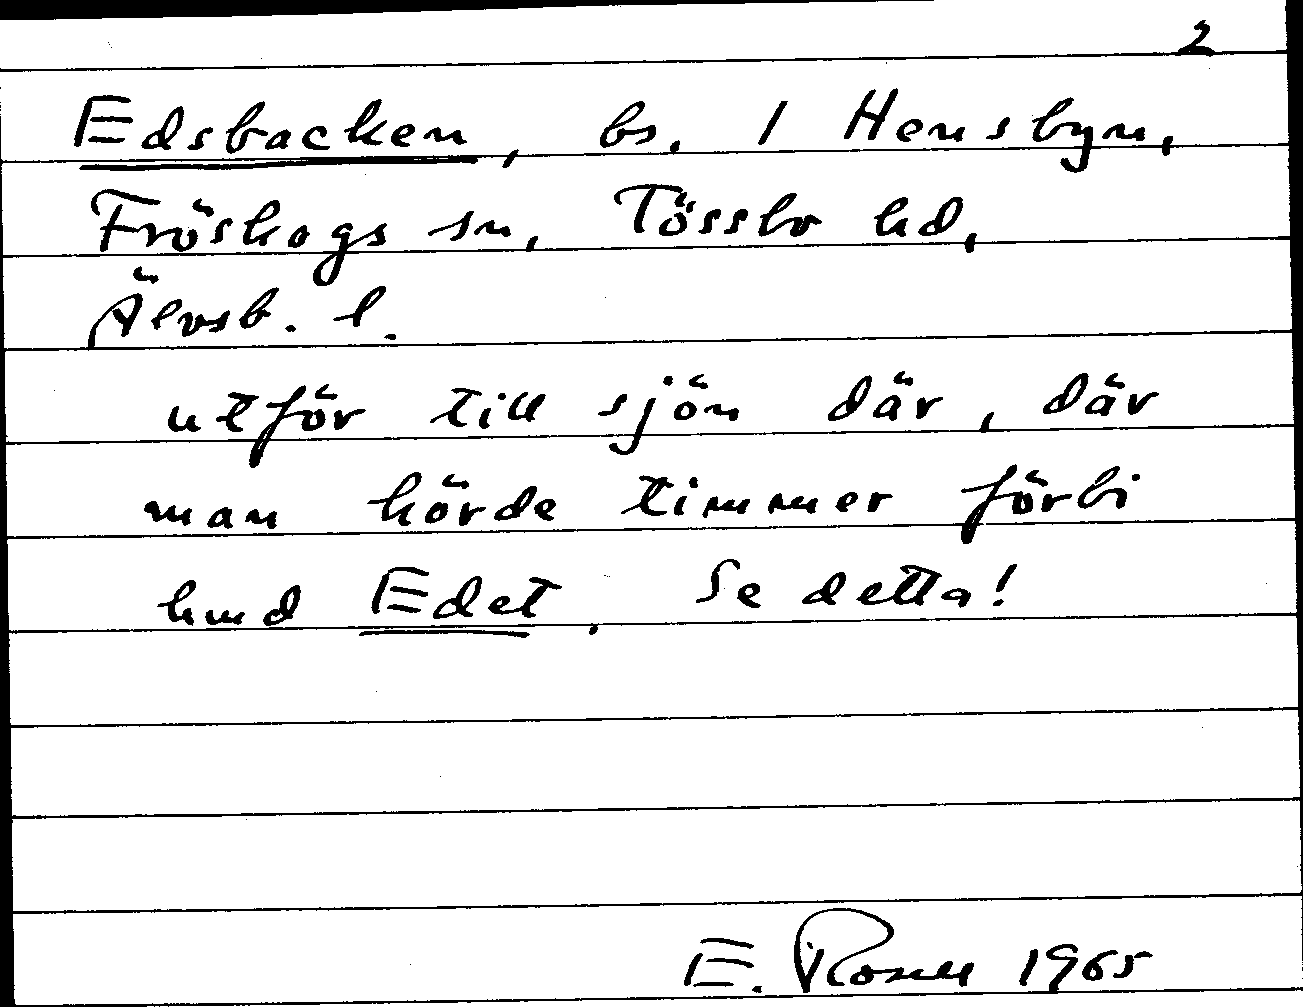 2
Edsbacken, bs. 1 Hensbyn,
Fröskogs sn, Tössbo hd,
Älvsb. l.
utför till sjön där, där
man hörde timmer förbi
hmd Edet. Se detta!
E. Rosell 1965